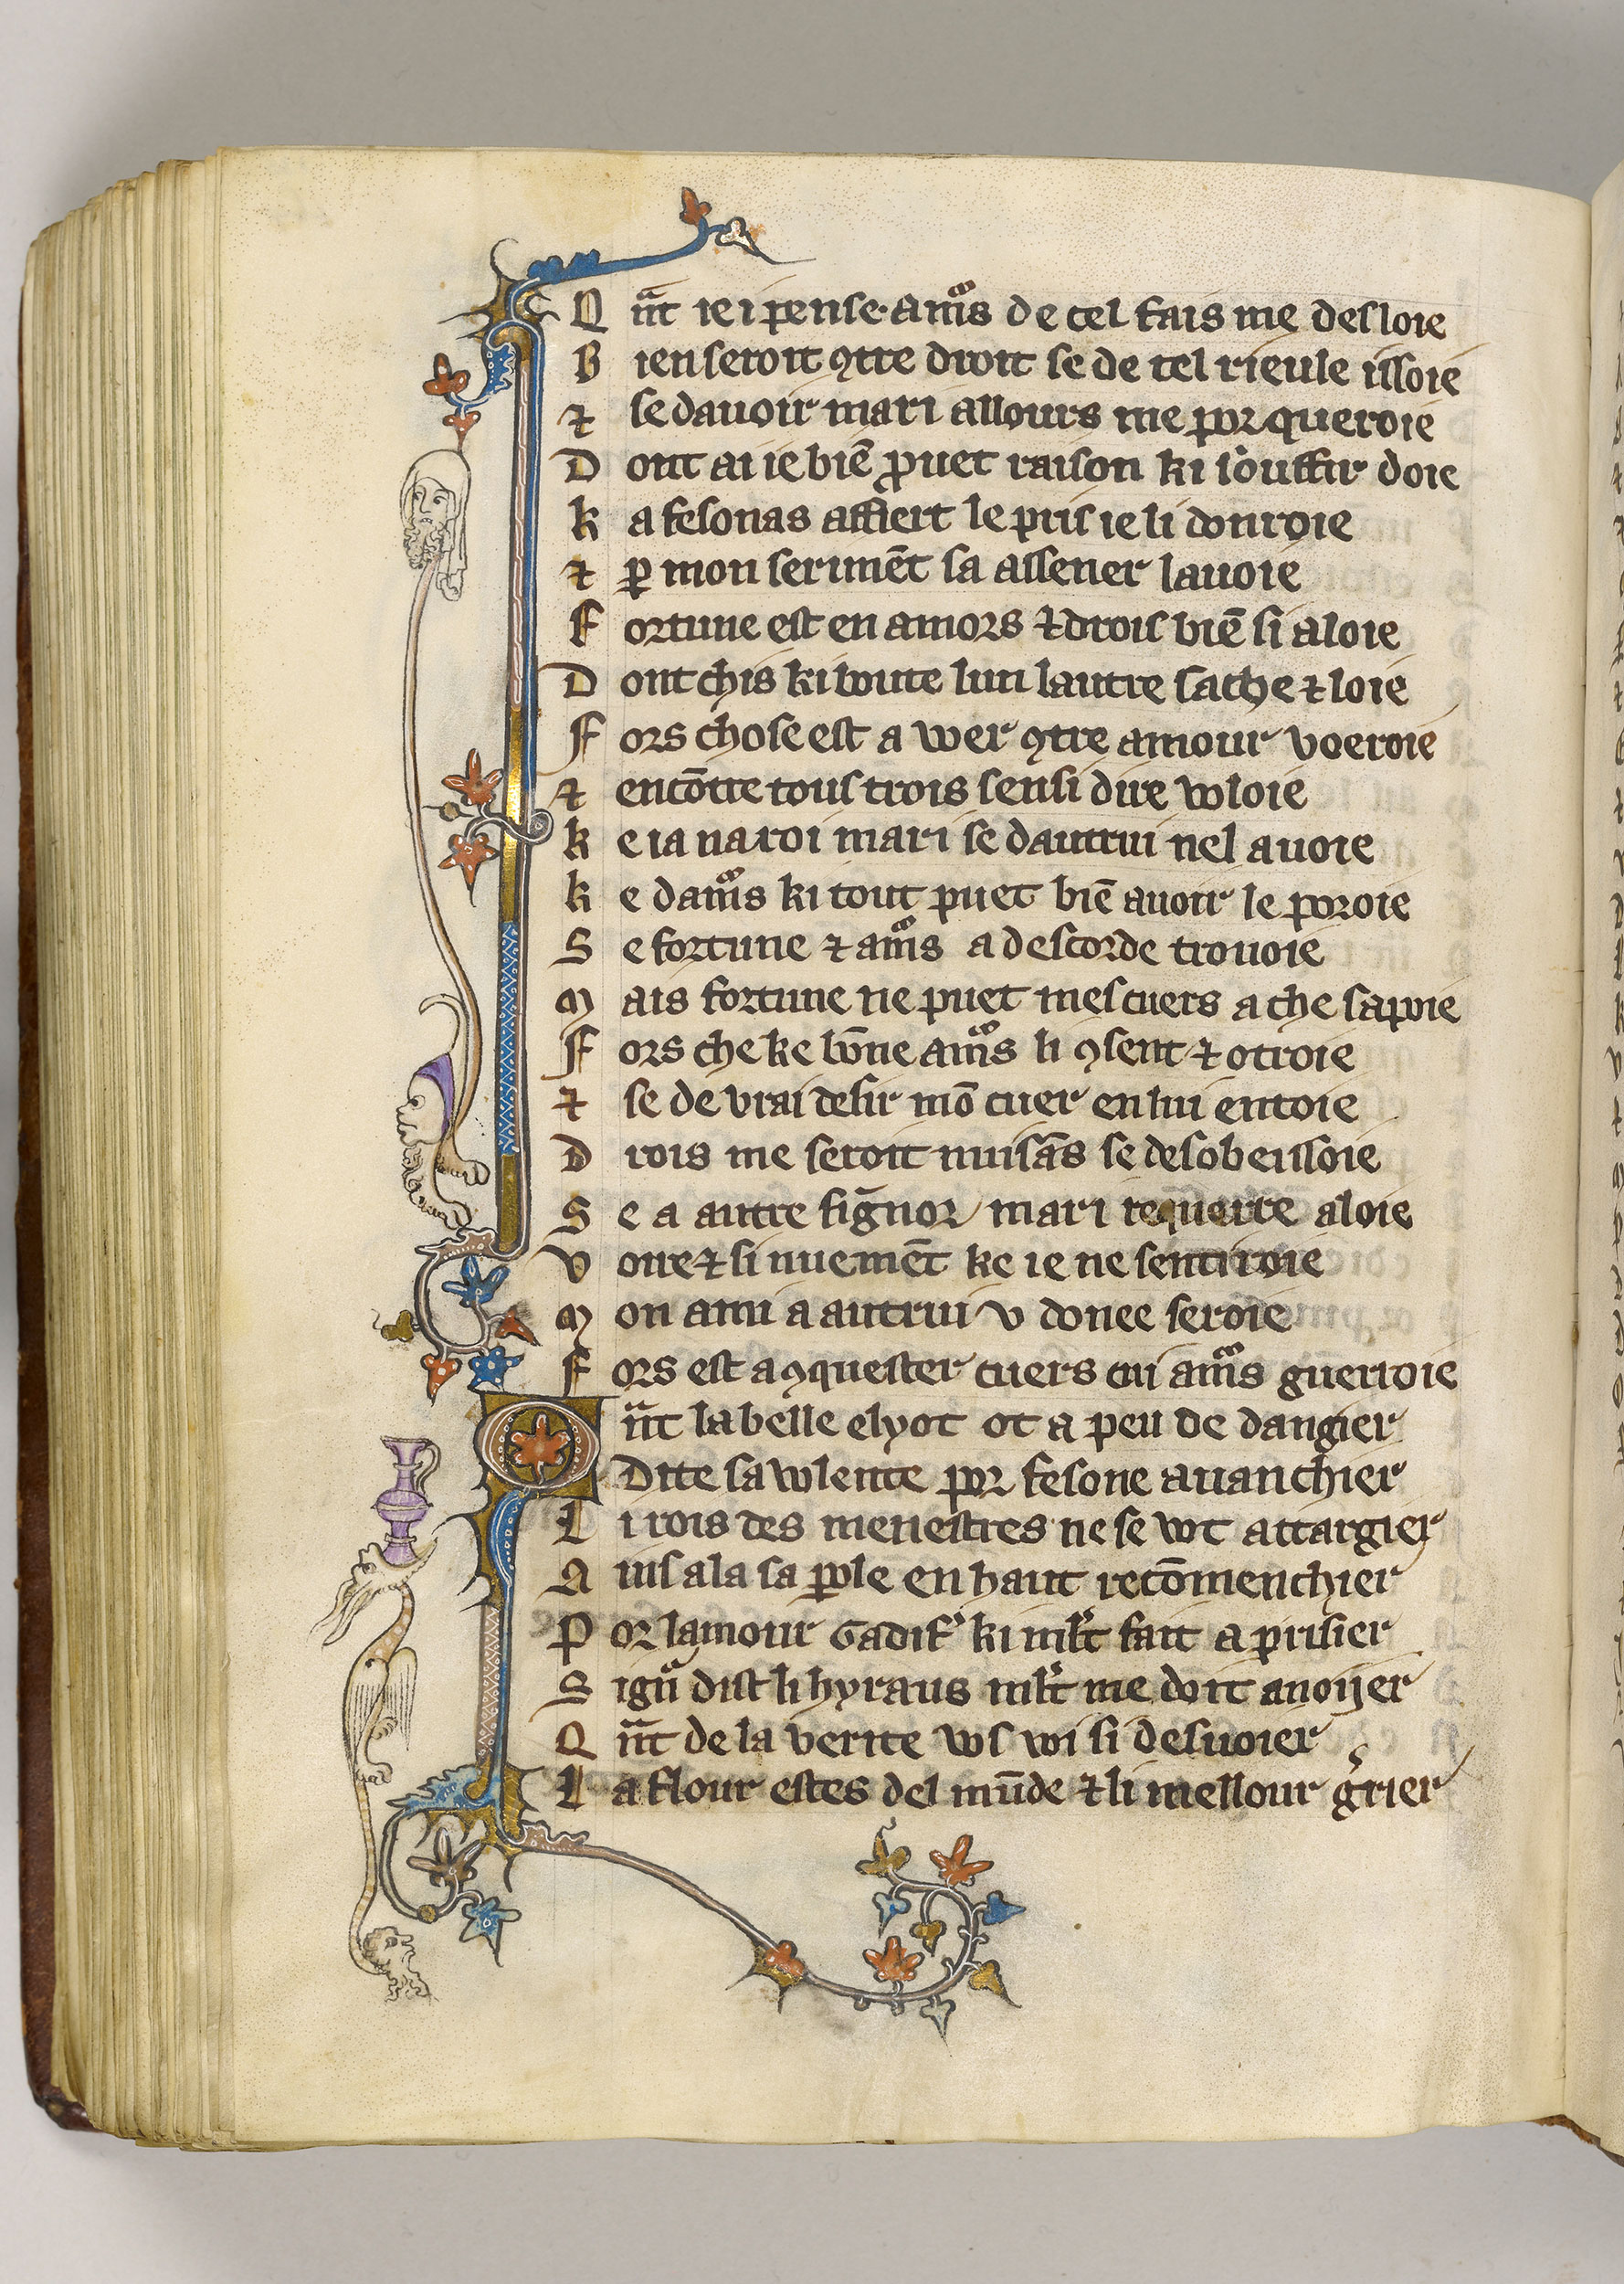 Qnͣt ie i pense · am̉s de tel fais me desloie
Bien seroit ꝯtre droit se de tel rieule issoie
⁊ se dauoir mari aillours me porqueroie
Dont ai ie biē ꝓuet raison ki souffir doie
ka fesonas affiert le pris ie li donroie
⁊ ꝑ mon serimēt sa assener lauoie
Fortune est en amors ⁊ drois biē si aloie
Dont chis ki boute lun lautre sache ⁊ loie
Fors chose est a voer ꝯtre amour voeroie
⁊ encōtre tous trois sensi dire voloie
ke ia naroi mari se dautrui nel auoie
ke dam̉s ki tout puet biē auoir le poroie
Se fortune ⁊ am̉s a descorde trouoie
Mais fortune ne puet mes cuers a che sapoie
Fors che ke bōne am̉s li ꝯsent ⁊ otroie
⁊ se de vrai desir mō cuer en lui entoie
Drois me seroit nuisās se desobeissoie
Se a autre sign̄or mari requerre aloie
Voire ⁊ si nuemēt ke ie ne sentiroie
Mon ami a autrui v donee seroie
Fors est a ꝯquester cuers cui am̉s guerroie
Qnͣt la belle elyot ot a peu de dangier
Dite sa volente por fesone auanchier
Li rois des menestres ne se vot attargier
Ains ala sa ꝑole en haut recōmenchier
Por lamour Gadif̉ ki ml̉t fait a prisier
Sign̉ dist li hyraus ml̉t me doit anoijer
Qnͣt de la verite vos voi si desuoier
La flour estes del mūde ⁊ li mellour gͥrier